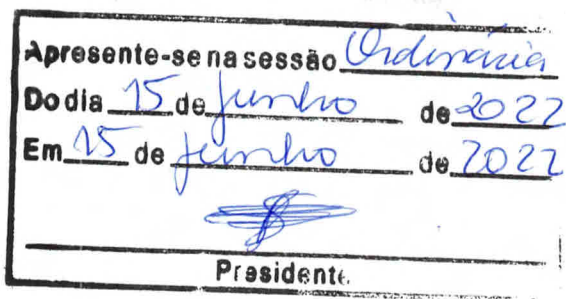 Apresente-se na sessão Ordinária
Do dia 15 de junho de 2022
Em 15 de junho de 2022
Presidente